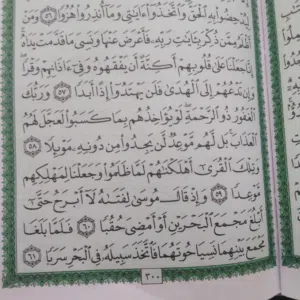 لِيُدْحِضُوا۟ بِهِ ٱلْحَقَّ ۖ وَٱتَّخَذُوٓا۟ ءَايَٰتِى وَمَآ أُنذِرُوا۟ هُزُوًا ٥٦ وَمَنْ
أَظْلَمُ مِمَّن ذُكِّرَ بِـَٔايَٰتِ رَبِّهِۦ فَأَعْرَضَ عَنْهَا وَنَسِىَ مَا قَدَّمَتْ يَدَاهُ ۚ
إِنَّا جَعَلْنَا عَلَىٰ قُلُوبِهِمْ أَكِنَّةً أَن يَفْقَهُوهُ وَفِىٓ ءَاذَانِهِمْ وَقْرًا ۖ
وَإِن تَدْعُهُمْ إِلَى ٱلْهُدَىٰ فَلَن يَهْتَدُوٓا۟ إِذًا أَبَدًا ٥٧ وَرَبُّكَ
ٱلْغَفُورُ ذُو ٱلرَّحْمَةِ ۖ لَوْ يُؤَاخِذُهُم بِمَا كَسَبُوا۟ لَعَجَّلَ لَهُمُ
ٱلْعَذَابَ ۚ بَل لَّهُم مَّوْعِدٌ لَّن يَجِدُوا۟ مِن دُونِهِۦ مَوْئِلًا ٥٨
وَتِلْكَ ٱلْقُرَىٰٓ أَهْلَكْنَٰهُمْ لَمَّا ظَلَمُوا۟ وَجَعَلْنَا لِمَهْلِكِهِم
مَّوْعِدًا ٥٩ وَإِذْ قَالَ مُوسَىٰ لِفَتَىٰهُ لَآ أَبْرَحُ حَتَّىٰٓ
أَبْلُغَ مَجْمَعَ ٱلْبَحْرَيْنِ أَوْ أَمْضِىَ حُقُبًا ٦٠ فَلَمَّا بَلَغَا
مَجْمَعَ بَيْنِهِمَا نَسِيَا حُوتَهُمَا فَٱتَّخَذَ سَبِيلَهُۥ فِى ٱلْبَحْرِ سَرَبًا ٦١
٣٠٠